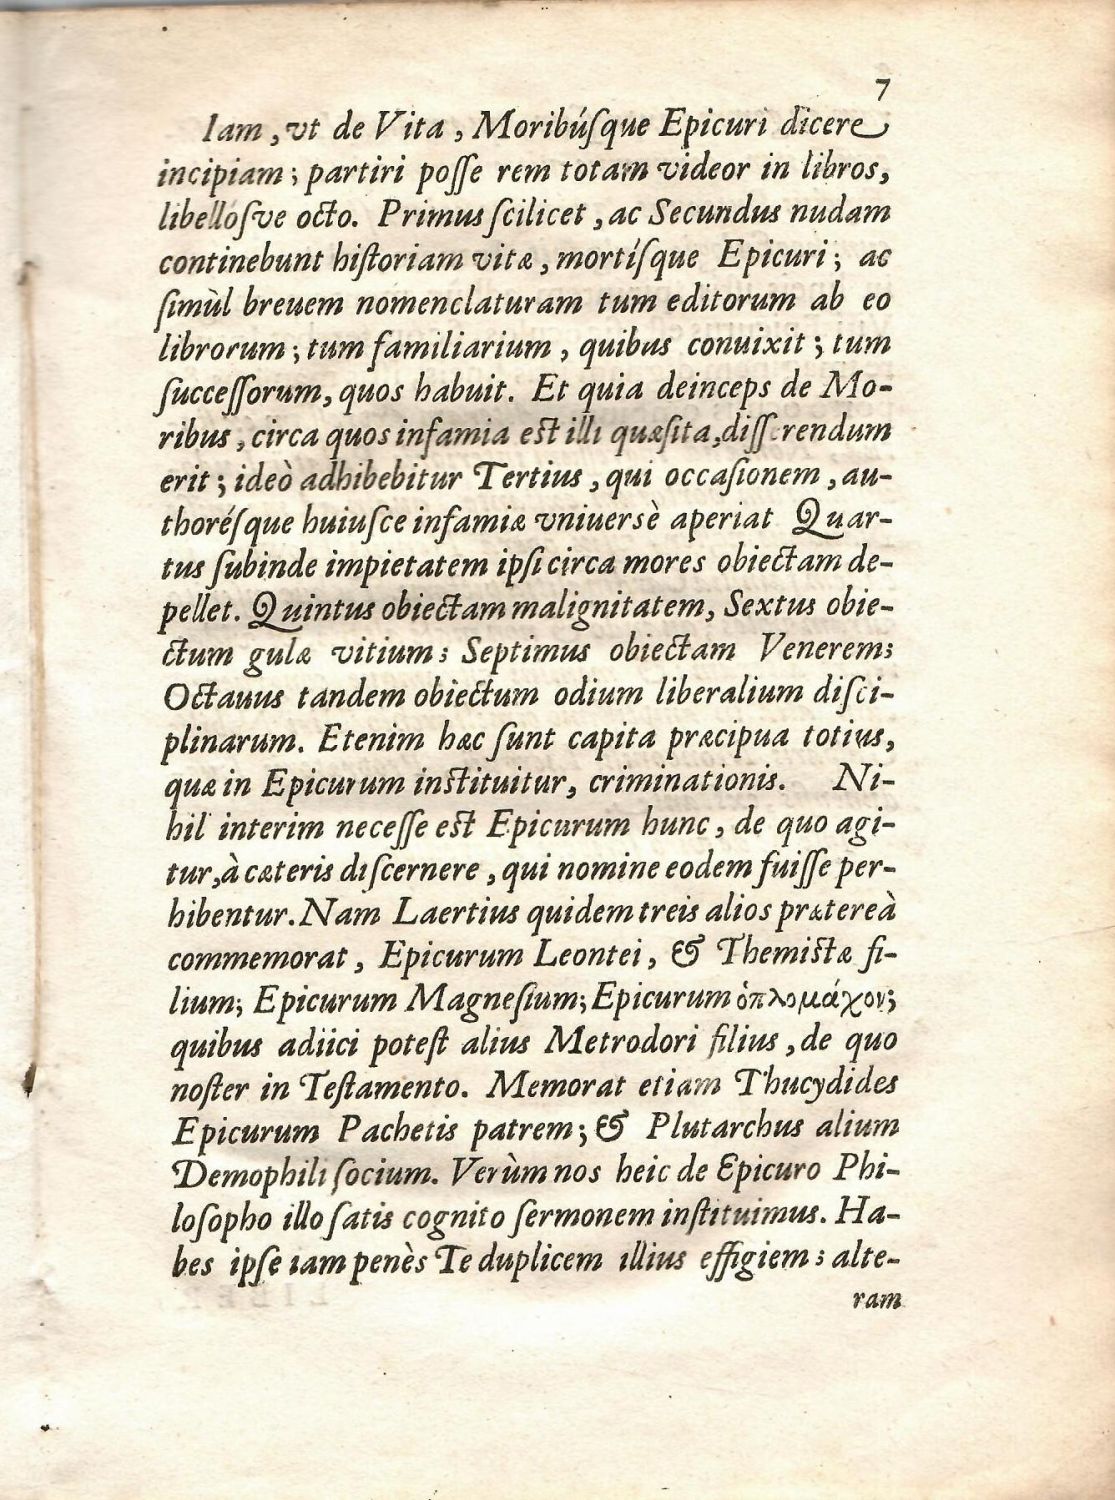 7
Iam, vt de Vita, Moribúsque Epicuri dicere
incipiam; partiri posse rem totam videor in libros,
libellósve octo. Primus scilicet, ac Secundus nudam
continebunt historiam vitæ, mortísque Epicuri; ac
simùl breuem nomenclaturam tum editorum ab eo
librorum; tum familiarium, quibus conuixit; tum
successorum, quos habuit. Et quia deinceps de Mo-
ribus, circa quos infamia est illi quæsita, disserendum
erit; ideò adhibebitur Tertius, qui occasionem, au-
thorésque huiusce infamiæ vniuersè aperiat Quar-
tus subinde impietatem ipsi circa mores obiectam de-
pellet. Quintus obiectam malignitatem, Sextus obie-
ctum gulæ vitium; Septimus obiectam Venerem;
Octauus tandem obiectum odium liberalium disci-
plinarum. Etenim hæc sunt capita præcipua totius,
quæ in Epicurum instituitur, criminationis. Ni-
hil interim necesse est Epicurum hunc, de quo agi-
tur, à cæteris discernere, qui nomine eodem fuisse per-
hibentur. Nam Laertius quidem treis alios prætereà
commemorat, Epicurum Leontei, & Themistæ fi-
lium; Epicurum Magnesium; Epicurum ὁπλομάχον;
quibus adiici potest alius Metrodori filius, de quo
noster in Testamento. Memorat etiam Thucydides
Epicurum Pachetis patrem; & Plutarchus alium
Demophili socium. Verùm nos heic de Epicuro Phi-
losopho illo satis cognito sermonem instituimus. Ha-
bes ipse iam penès Te duplicem illius effigiem; alte-
ram